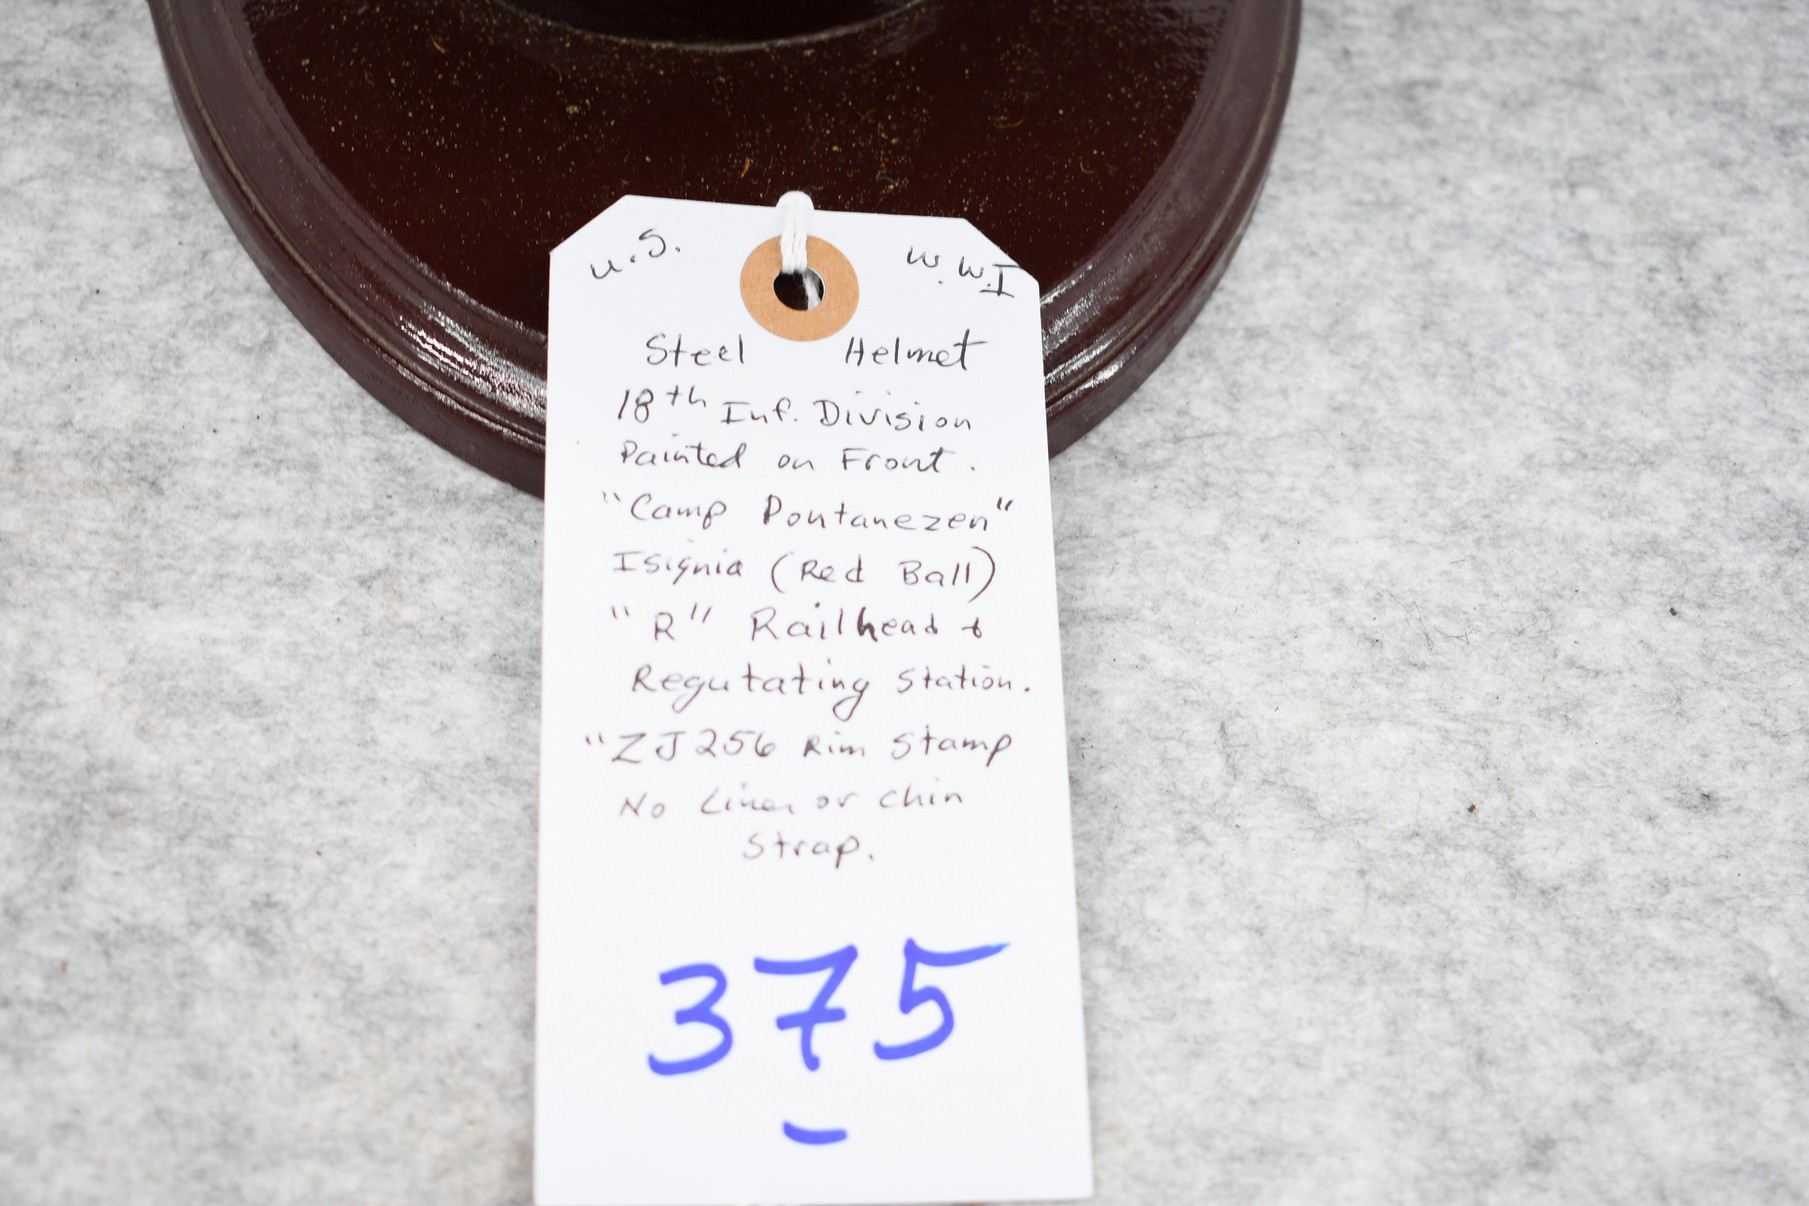 U.S. W.W.I
Steel Helmet
18th Inf. Division
Painted on Front.
"Camp Pontanezen"
Isignia (Red Ball)
"R" Railhead &
Regutating Station.
"ZJ256 Rim Stamp
No Liner or Chin
Strap.
375
-